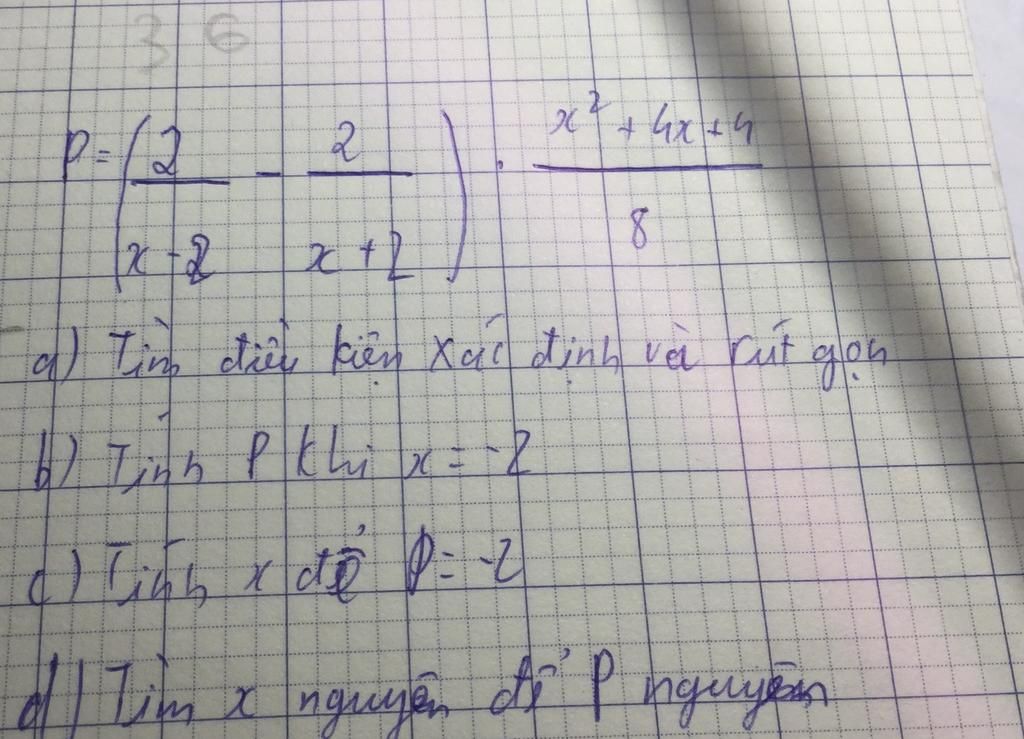 36
P = (2/(x-2) - 2/(x+2)) . (x² + 4x + 4)/8
a) Tìm điều kiện xác định và rút gọn
b) Tính P khi x = -2
c) Tính x để P = -2
d) Tìm x nguyên để P nguyên